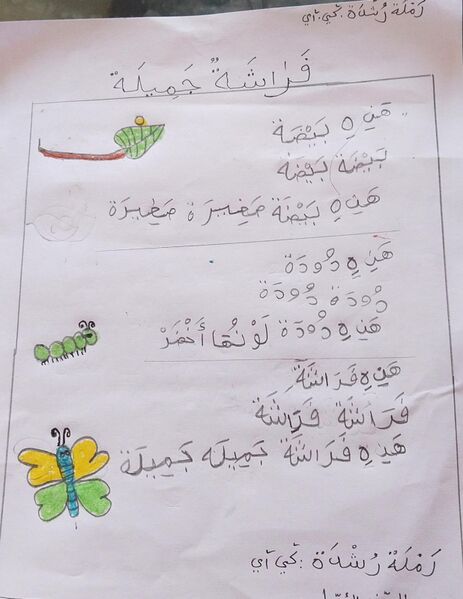 رَمْلَة رُشْدَة : كِي آي
فَرَاشَةٌ جَمِيلَة
هَذِهِ بَيْضَة
بَيْضَة بَيْضَة
هَذِهِ بَيْضَة صَغِيرَة صَغِيرَة
هَذِهِ دُودَة
دُودَة دُودَة
هَذِهِ دُودَة لَوْنُهَا أَخْضَرْ
هَذِهِ فَرَاشَة
فَرَاشَة فَرَاشَة
هَذِهِ فَرَاشَة جَمِيلَه جَمِيلَة
رَمْلَة رُشْدَة : كِي آي